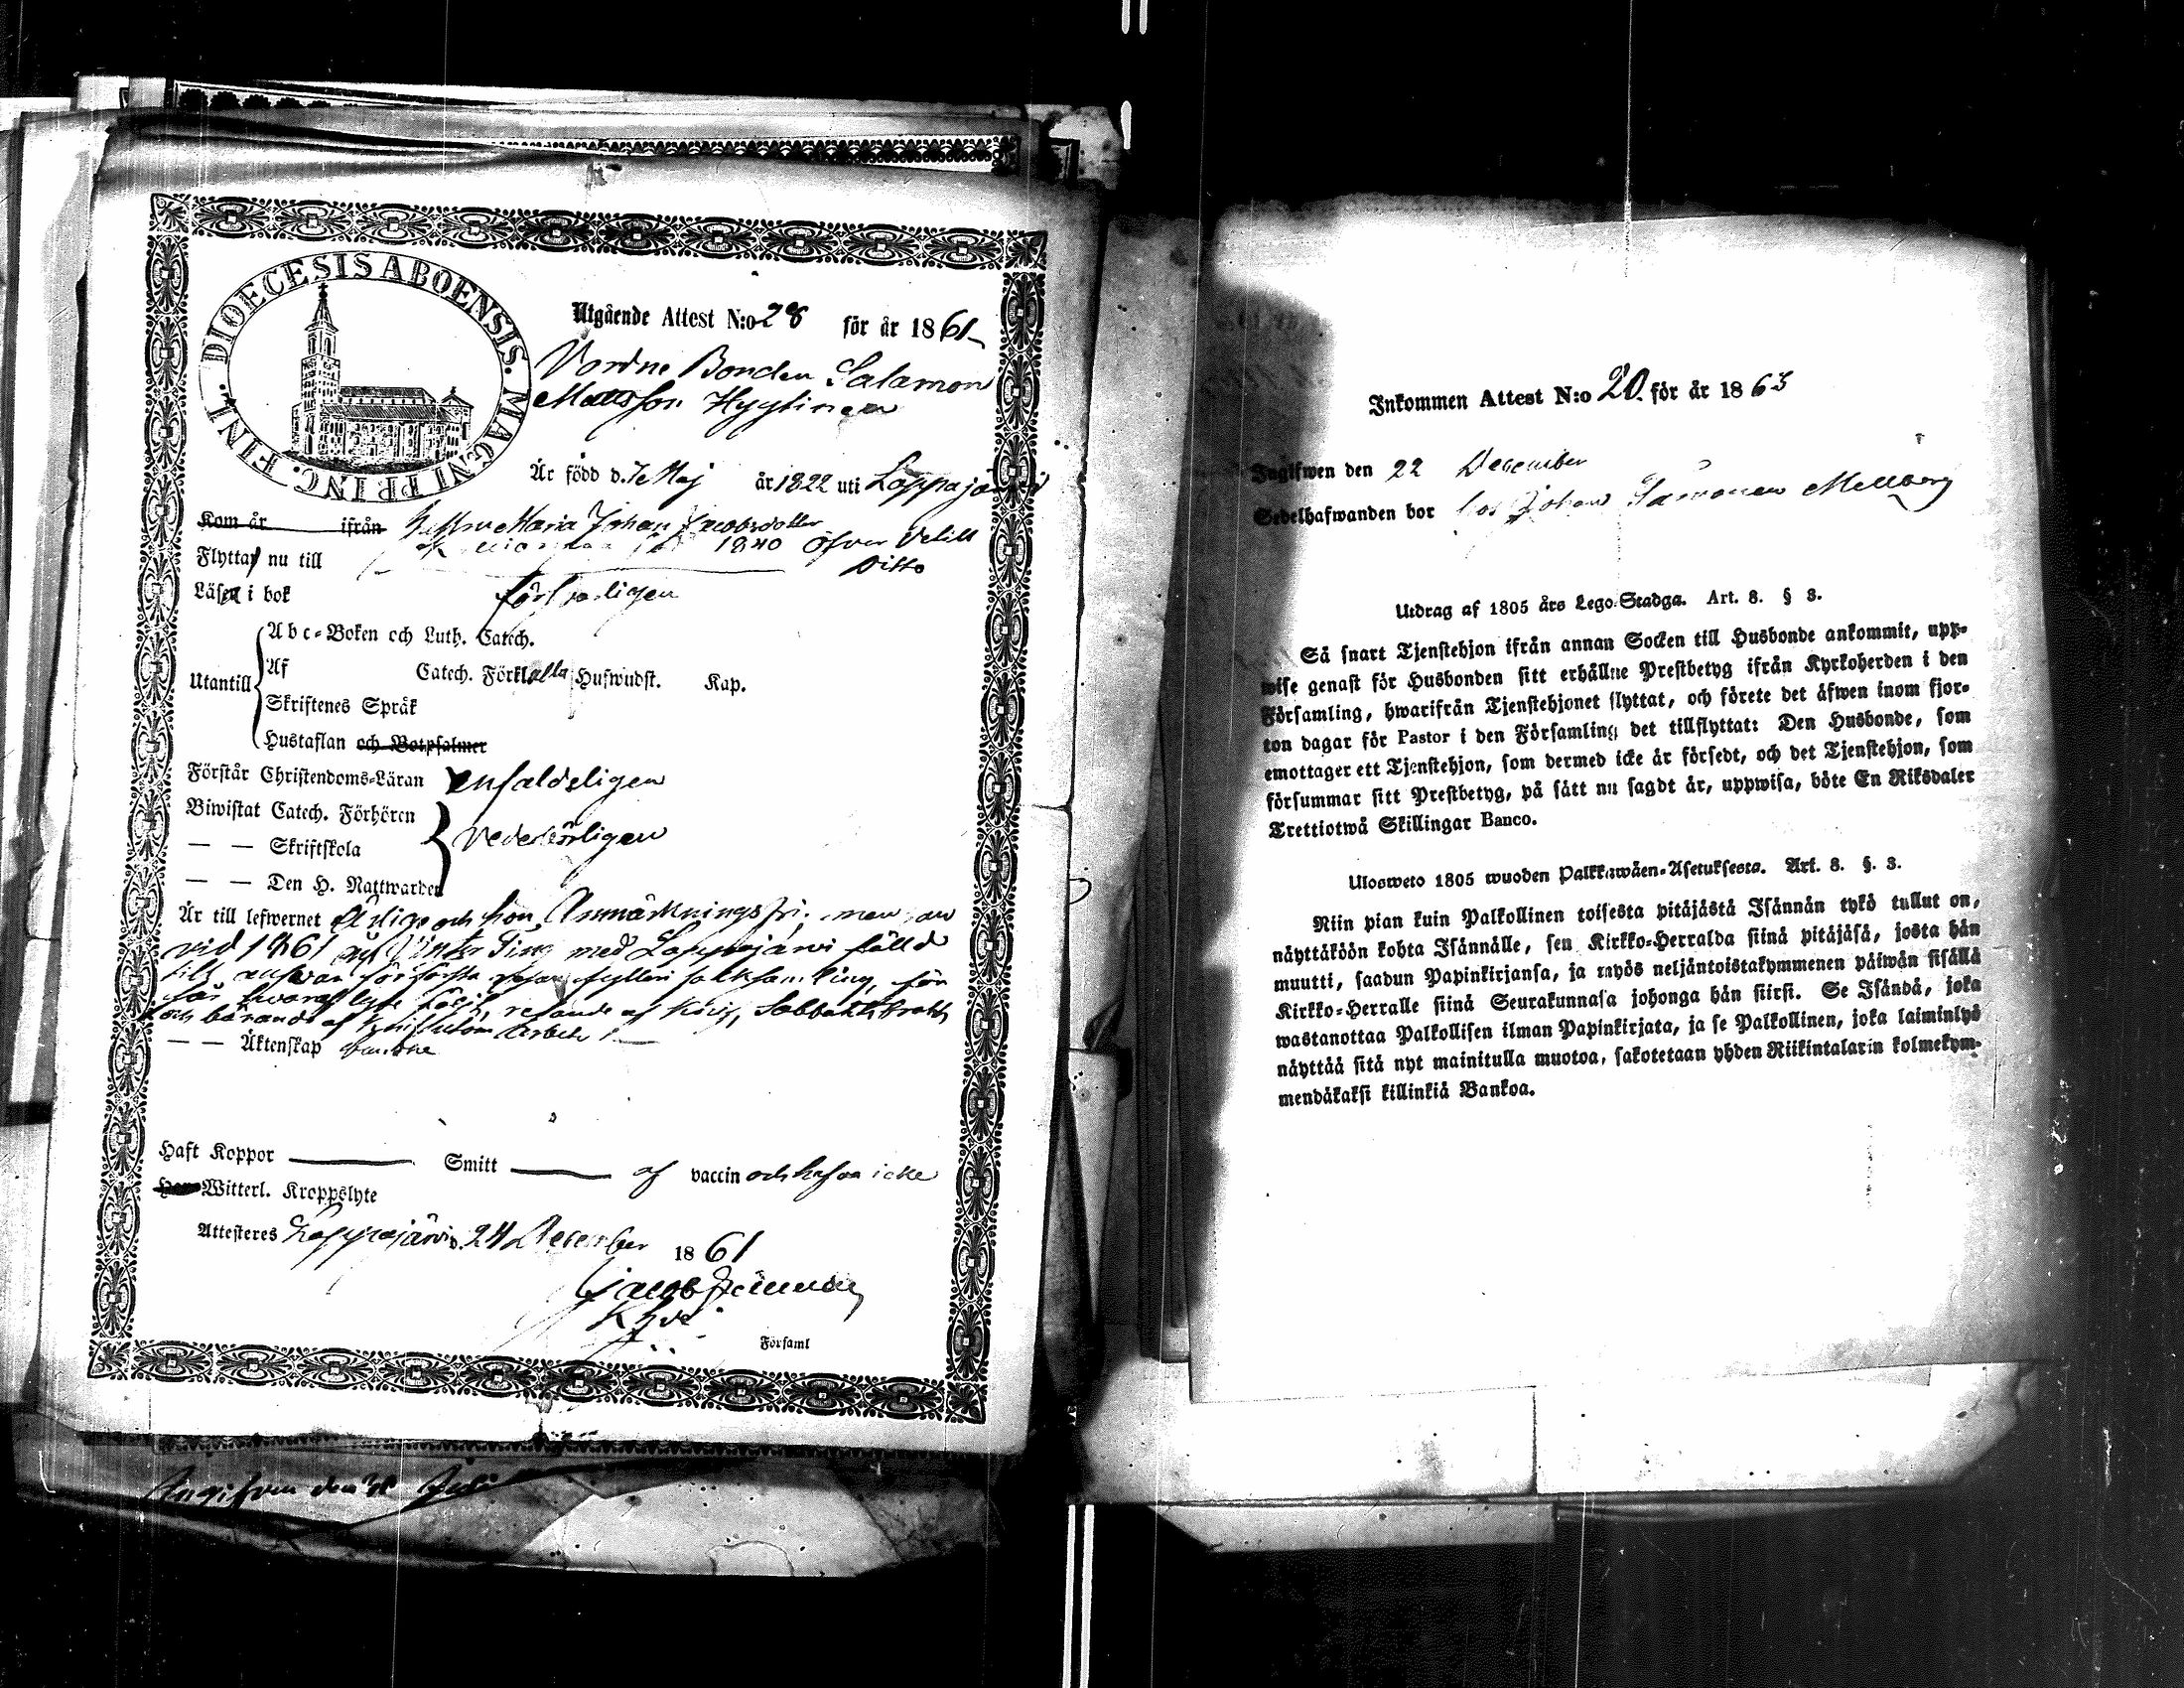 DIOECESIS ABOENSIS. MAGNI PRINC. FINL.
Utgående Attest N:o 28 för år 1861
Bonden Salamon
Mattsson Hyytinen
Är född d. 7 Maj år 1822 uti Lappajärvi
Kom år ifrån Maria Johan Jacobsdotter
1840 öfver Vetill
Flyttar nu till Ditto
Läser i bok försvarligen
Utantill
Abc-Boken och Luth. Catech.
Af Catech. Förkl. alla Huswudst. Kap.
Skriftenes Språk
Hustaflan och Botpsalmer
Förstår Christendoms-Läran enfaldeligen
Biwistat Catech. Förhören
— — Skriftskola vederbörligen
— — Den H. Nattwarden
Är till lefwernet och hon Anmärkningsfri, men
vid 1861 års Vinter Ting med Lappajärvi fälld
till ansvar för första resan fylleri
af Sabbathsbrott
och
— — Äktenskap
Haft Koppor — Smitt — af vaccin och hafva icke
Witterl. Kroppslyte
Attesteres Lappajärvi d. 24 December 1861
Jacob
Khde
Församl
Ingifven den
Inkommen Attest N:o 20. för år 1863
Ingifwen den 22 December
Sedelhafwanden bor hos Johan Mellberg
Utdrag af 1805 års Lego-Stadga. Art. 8. § 3.
Så snart Tjenstehjon ifrån annan Socken till Husbonde ankommit, upp-
wise genast för Husbonden sitt erhållne Prestbetyg ifrån Kyrkoherden i den
Församling, hwarifrån Tjenstehjonet flyttat, och förete det äfwen inom fjor-
ton dagar för Pastor i den Församling det tillflyttat: Den Husbonde, som
emottager ett Tjenstehjon, som dermed icke är försedt, och det Tjenstehjon, som
försummar sitt Prestbetyg, på sätt nu sagdt är, uppwisa, böte En Riksdaler
Trettiotwå Skillingar Banco.
Ulosweto 1805 wuoden Palkkawäen-Asetuksesta. Art. 8. §. 3.
Niin pian kuin Palkollinen toisesta pitäjästä Isännän tykö tullut on,
näyttäköön kohta Isännälle, sen Kirkko-Herralda siinä pitäjäsä, josta hän
muutti, saadun Papinkirjansa, ja myös neljäntoistakymmenen päiwän sisällä
Kirkko-Herralle siinä Seurakunnasa johonga hän siirsi. Se Isändä, joka
wastanottaa Palkollisen ilman Papinkirjata, ja se Palkollinen, joka laiminlyö
näyttää sitä nyt mainitulla muotoa, sakotetaan yhden Riikintalarin kolmekym-
mendäkaksi killinkiä Bankoa.